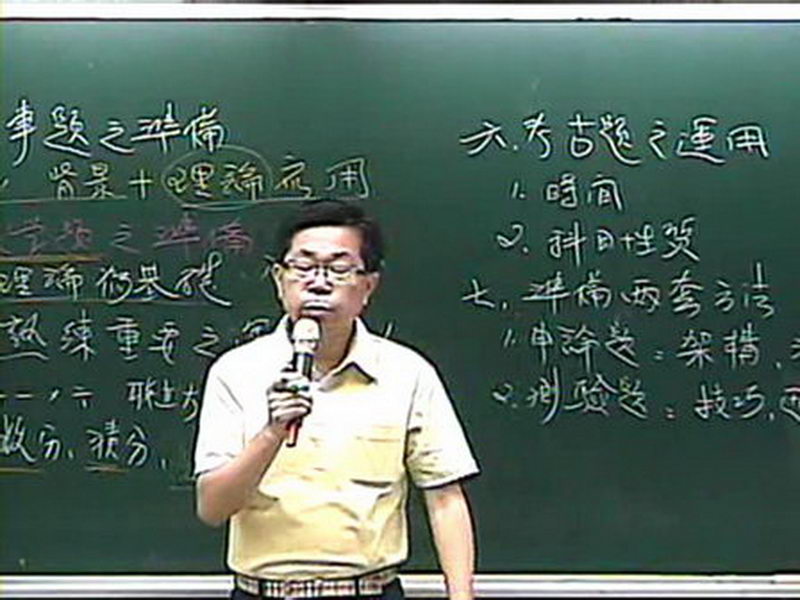 事題之準備
背景+理論应用
之準備
理論的基礎
熟練重要之
微分、積分、
六.考古題之運用
1.時间
2.科目性質
七.準備两套方法
1.申論題:架構、
2.測驗題:技巧、